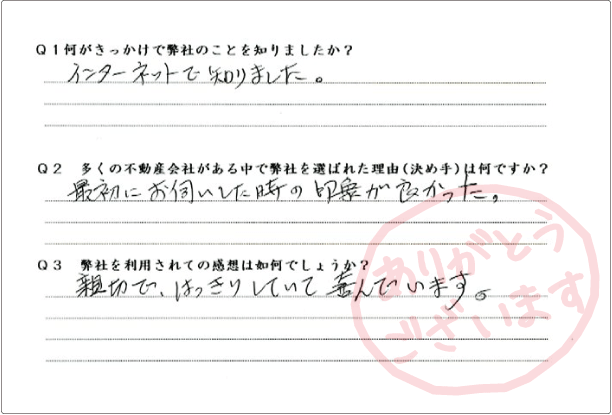 Q1何がきっかけで弊社のことを知りましたか？
インターネットで知りました。
Q2　多くの不動産会社がある中で弊社を選ばれた理由(決め手)は何ですか？
最初にお伺いした時の印象が良かった。
Q3　弊社を利用されての感想は如何でしょうか？
親切で、はっきりしていて喜んでいます。
ありがとう
ございます